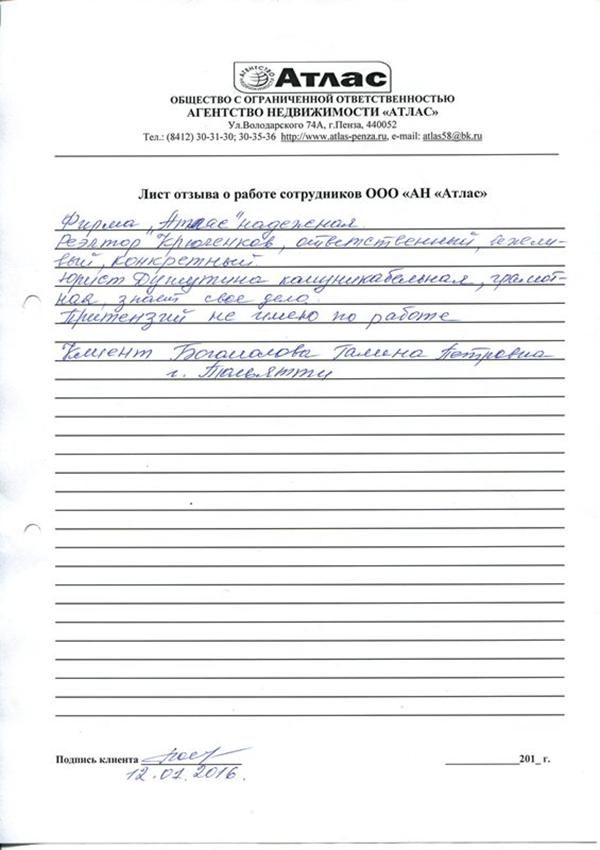 АГЕНТСТВО НЕДВИЖИМОСТИ
АТЛАС
ОБЩЕСТВО С ОГРАНИЧЕННОЙ ОТВЕТСТВЕННОСТЬЮ
АГЕНТСТВО НЕДВИЖИМОСТИ «АТЛАС»
Ул.Володарского 74А, г.Пенза, 440052
Тел.: (8412) 30-31-30; 30-35-36 http://www.atlas-penza.ru, e-mail: atlas58@bk.ru
Лист отзыва о работе сотрудников ООО «АН «Атлас»
Фирма „Атлас" надежная.
Реэлтор Крюченков, ответственный, вежли-
вый, конкретный
Юрист Душутина комуникабельная, грамот-
ная, знает свое дело.
Притензий не имею по работе
Клиент Богомолова Галина Петровна
г. Тольятти
Подпись клиента
201_ г.
12.01.2016.